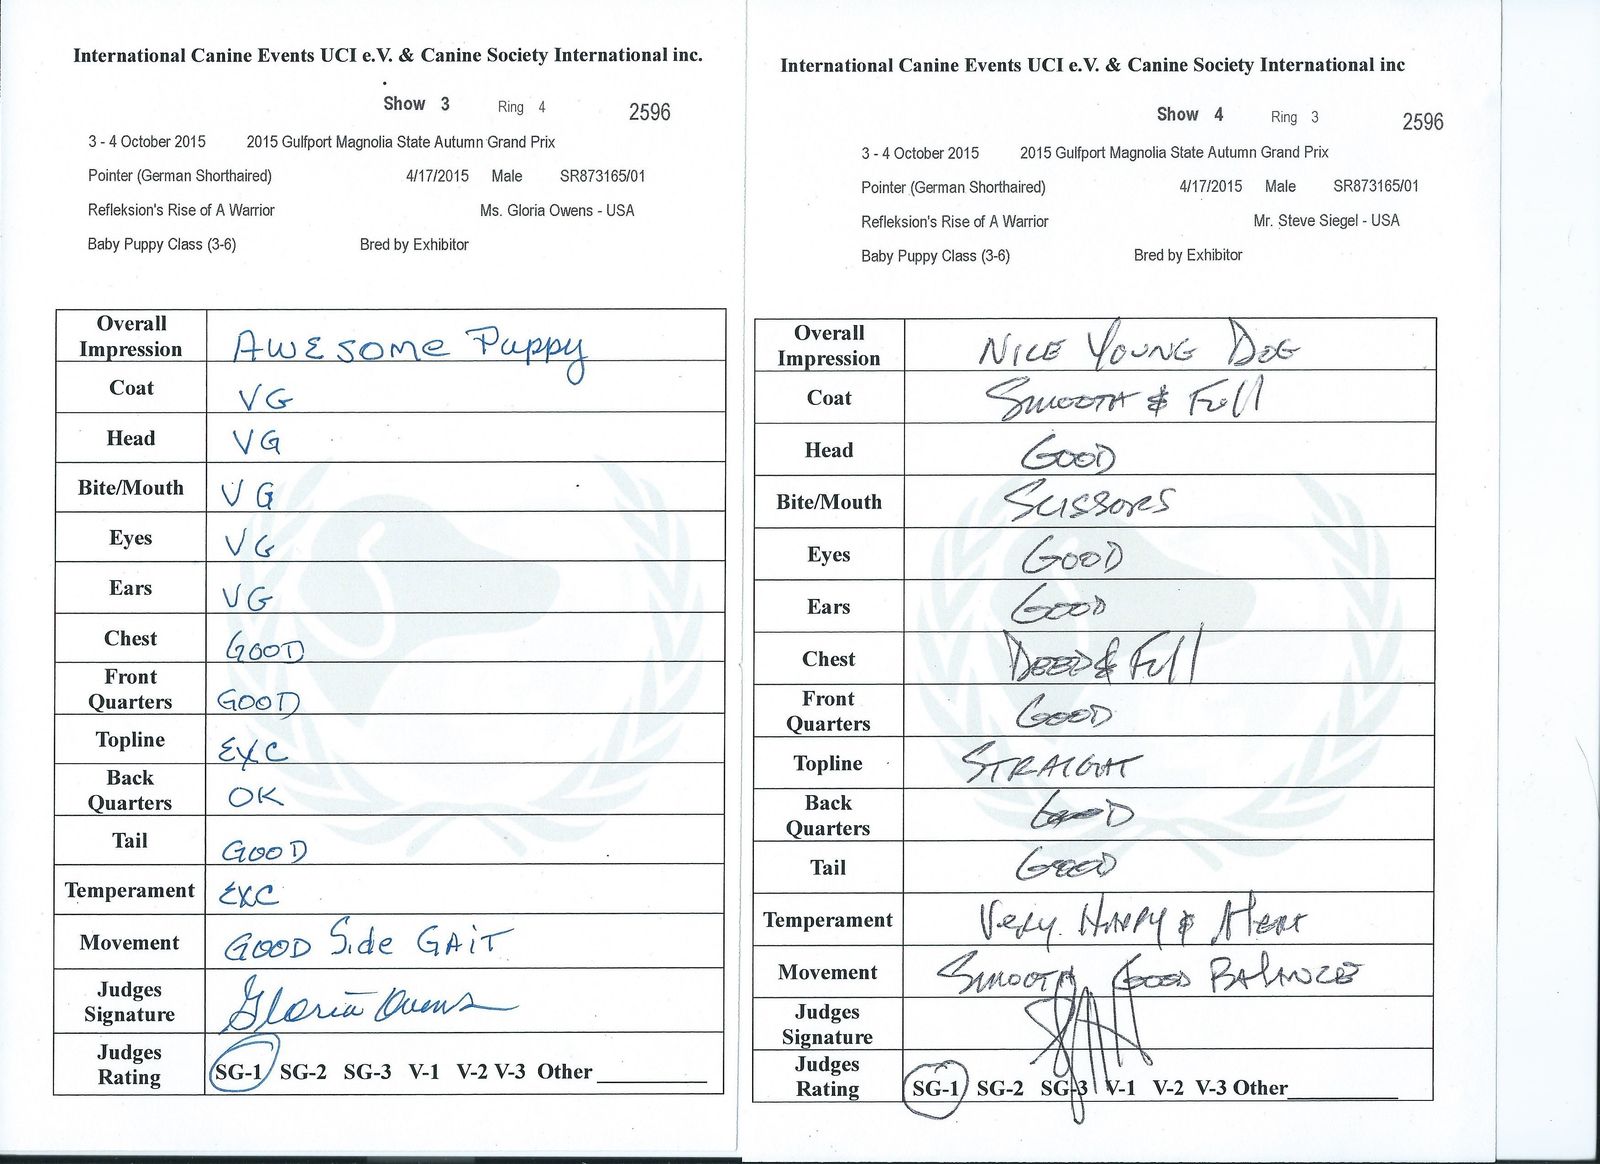 International Canine Events UCI e.V. & Canine Society International inc.
Show 3 Ring 4 2596
3 - 4 October 2015 2015 Gulfport Magnolia State Autumn Grand Prix
Pointer (German Shorthaired) 4/17/2015 Male SR873165/01
Refleksion's Rise of A Warrior Ms. Gloria Owens - USA
Baby Puppy Class (3-6) Bred by Exhibitor
Overall Impression AWESOME Puppy
Coat VG
Head VG
Bite/Mouth VG
Eyes VG
Ears VG
Chest GOOD
Front Quarters GOOD
Topline EXC
Back Quarters OK
Tail GOOD
Temperament EXC
Movement GOOD Side GAiT
Judges Signature Gloria Owens
Judges Rating SG-1 SG-2 SG-3 V-1 V-2 V-3 Other
International Canine Events UCI e.V. & Canine Society International inc
Show 4 Ring 3 2596
3 - 4 October 2015 2015 Gulfport Magnolia State Autumn Grand Prix
Pointer (German Shorthaired) 4/17/2015 Male SR873165/01
Refleksion's Rise of A Warrior Mr. Steve Siegel - USA
Baby Puppy Class (3-6) Bred by Exhibitor
Overall Impression NICE YOUNG DOG
Coat SMOOTH & Full
Head GOOD
Bite/Mouth SCISSORS
Eyes GOOD
Ears GOOD
Chest & Full
Front Quarters GOOD
Topline STRAIGHT
Back Quarters GOOD
Tail GOOD
Temperament Very HAPPY & Alert
Movement SMOOTH GOOD BALANCE
Judges Signature
Judges Rating SG-1 SG-2 SG-3 V-1 V-2 V-3 Other